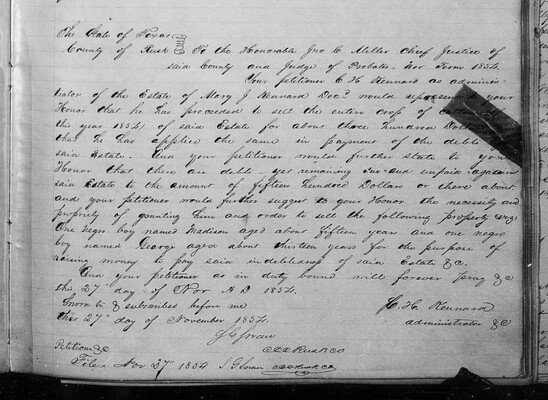 The State of Texas
County of Rusk To the Honorable Jno C Miller Chief Justice of
said County and Judge of Probate. Nov Term 1854.
Your petitioner C H Kennard as adminis-
trator of the Estate of Mary J Kennard Decd would represent your
Honor that he has proceeded to sell the entire crop of
the year 1854 of said Estate for about three hundred
that he has applied the same in payment of the debts
said Estate. And your petitioner would further state to your
Honor that there are debts yet remaining due and unpaid against
said Estate to the amount of fifteen hundred Dollars or there about
and your petitioner would further suggest to your Honor the necessity and
propriety of granting him and order to sell the following property
One negro boy named Madison aged about fifteen year and one negro
boy named George aged about thirteen years for the purpose of
raising money to pay said indebtedness of said Estate &c.
And your petitioner as in duty bound will forever pray &c
this 27th day of Nov A D 1854.
Sworn to & subscribed before me
this 27th day of November 1854.
C. H. Kennard
administrator &C
S G Swan
CCCRuskCo
Petition &C
Filed Nov 27 1854 S G Swan CCCRuskCo